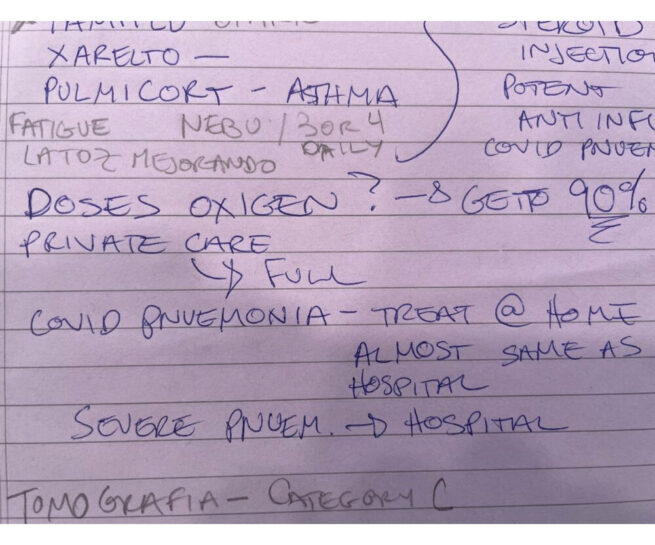 XARELTO —
PULMICORT - ASTHMA
FATIGUE NEBU / 3 OR 4
DAILY
LATOZ MEJORANDO
STEROID
INJECTIO
POTENT
ANTI INFL
COVID PNUEM
DOSES OXIGEN? → GET TO 90%
PRIVATE CARE
↳ FULL
COVID PNVEMONIA - TREAT @ HOME
ALMOST SAME AS
HOSPITAL
SEVERE PNVEM. → HOSPITAL
TOMOGRAFIA - CATEGORY C